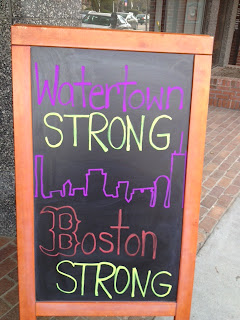 Watertown
STRONG
Boston
STRONG